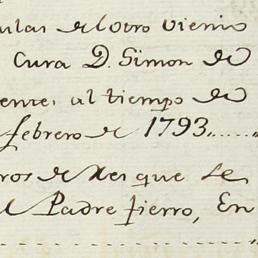 ulas de l otro vienio
Cura D. Simon de
ente, al tiempo de
febrero de 1793......"
ros de Res que se
l Padre fierro, En